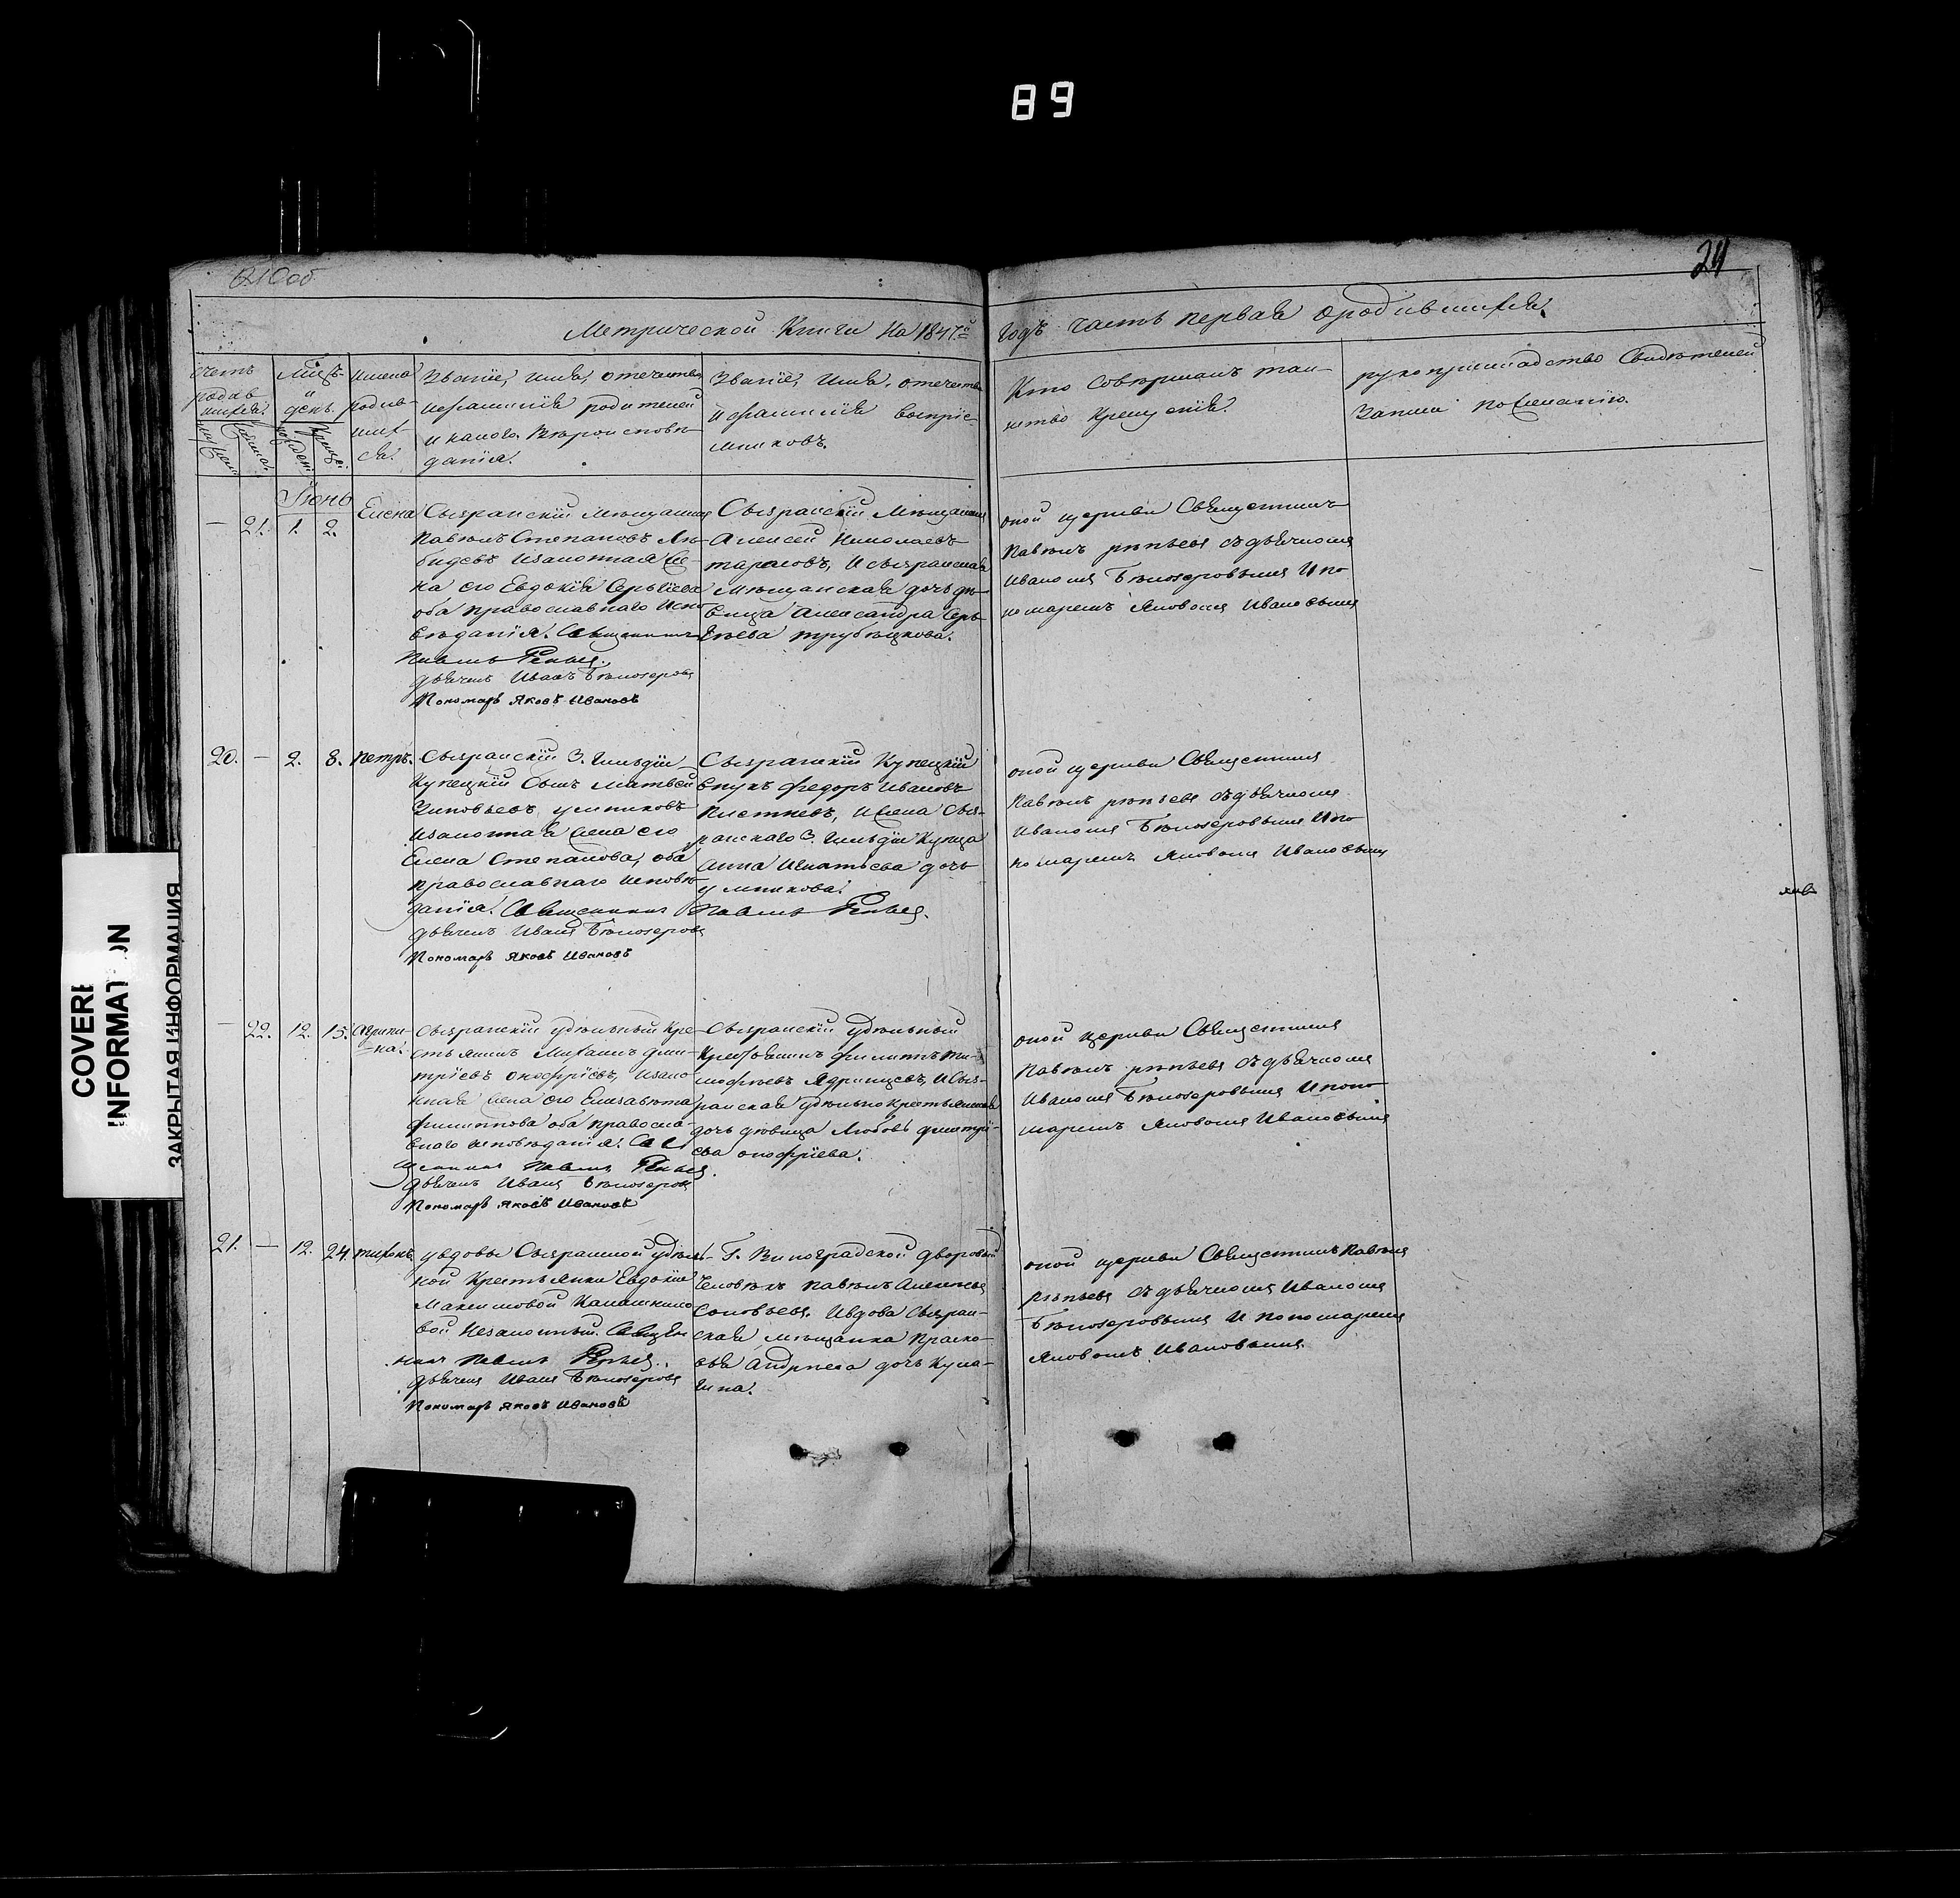 89
24
Метрической Книги на 1847й
годъ часть первая о родившихся.
счетъ родившихся.
Мѣсяцъ и день.
имена родившихся.
Званіе, имя, отечество
и фамилія родителей
и какого вѣроисповѣ-
данія.
Званіе, имя, отечество
и фамилія воспріе-
мниковъ.
Кто совершалъ таи-
нство крещенія.
рукоприкладство свидѣтелей
записи по желанію.
Іюнь
— 21. 1. 2. Елена
Сызранскій мѣщанинъ
Павелъ Степановъ
и законная же-
на его Евдокія Сергѣева
оба православнаго испо
вѣданія. Священникъ
Павелъ
дьячекъ Иванъ Бѣлозеровъ
Пономарь Яковъ Ивановъ
Сызранскій Мѣщанинъ
Алексей Николаевъ
тарасовъ, и сызранская
мѣщанская дочь дѣ-
вица Александра Серг
ѣева трубѣцкова.
оной церкви Священникъ
Павелъ рѣпьевъ съ дьячкомъ
Иваномъ Бѣлозеровымъ и по
номаремъ Яковомъ Ивановымъ
20. — 2. 8. Петръ.
Сызранскій 3. гильдіи
Купецкій сынъ Матвей
Зиновьевъ умниковъ
и законная жена его
Елена Степанова, оба
православнаго исповѣ
данія. Священникъ Павелъ
дьячекъ Иванъ Бѣлозеровъ
Пономарь Яковъ Ивановъ
Сызранскій Купецкій
внукъ Федоръ Ивановъ
и жена Сыз-
ранскаго 3. гильдіи Купца
Анна Игнатьева дочь
умникова.
оной церкви Священникъ
Павелъ рѣпьевъ съ дьячкомъ
Иваномъ Бѣлозеровымъ и по
номаремъ Яковомъ Ивановымъ
— 22. 12. 15. Агрипи-
на.
Сызранскій удѣльный кре-
стьянинъ Михаилъ дми-
тріевъ онофріевъ, и зако
нная жена его Елизавета
филиппова оба правосла-
внаго исповѣданія. Свя
щенникъ Павелъ
дьячекъ Иванъ Бѣлозеровъ
Пономарь Яковъ Ивановъ
Сызранскій удѣльный
Крестьянинъ филиппъ ти-
мофѣевъ Ядринцевъ, и сыз-
ранская удѣльно крестьянская
дочь дѣвица Любовь дмитрі-
ева онофріева.
оной церкви Священникъ
Павелъ рѣпьевъ съ дьячкомъ
Иваномъ Бѣлозеровымъ и поно
маремъ Яковомъ Ивановымъ
21. — 12. 24. тихонъ.
у вдовы Сызранской удѣль
ной Крестьянки Евдокіи
Максимовой Калашнико
вой Незаконный. Священ
никъ Павелъ
дьячекъ Иванъ Бѣлозеровъ
Пономарь Яковъ Ивановъ
Г. Виноградской дворовый
человѣкъ Павелъ Алексѣевъ
Соловьевъ. И вдова Сызран-
ская мѣщанка Праско-
вья Андреева дочь
оной церкви Священникъ Павелъ
рѣпьевъ съ дьячкомъ Иваномъ
Бѣлозеровымъ и пономаремъ
Яковомъ Ивановымъ.
COVERE
INFORMAT ON
ЗАКРЫТАЯ ИНФОРМАЦИЯ